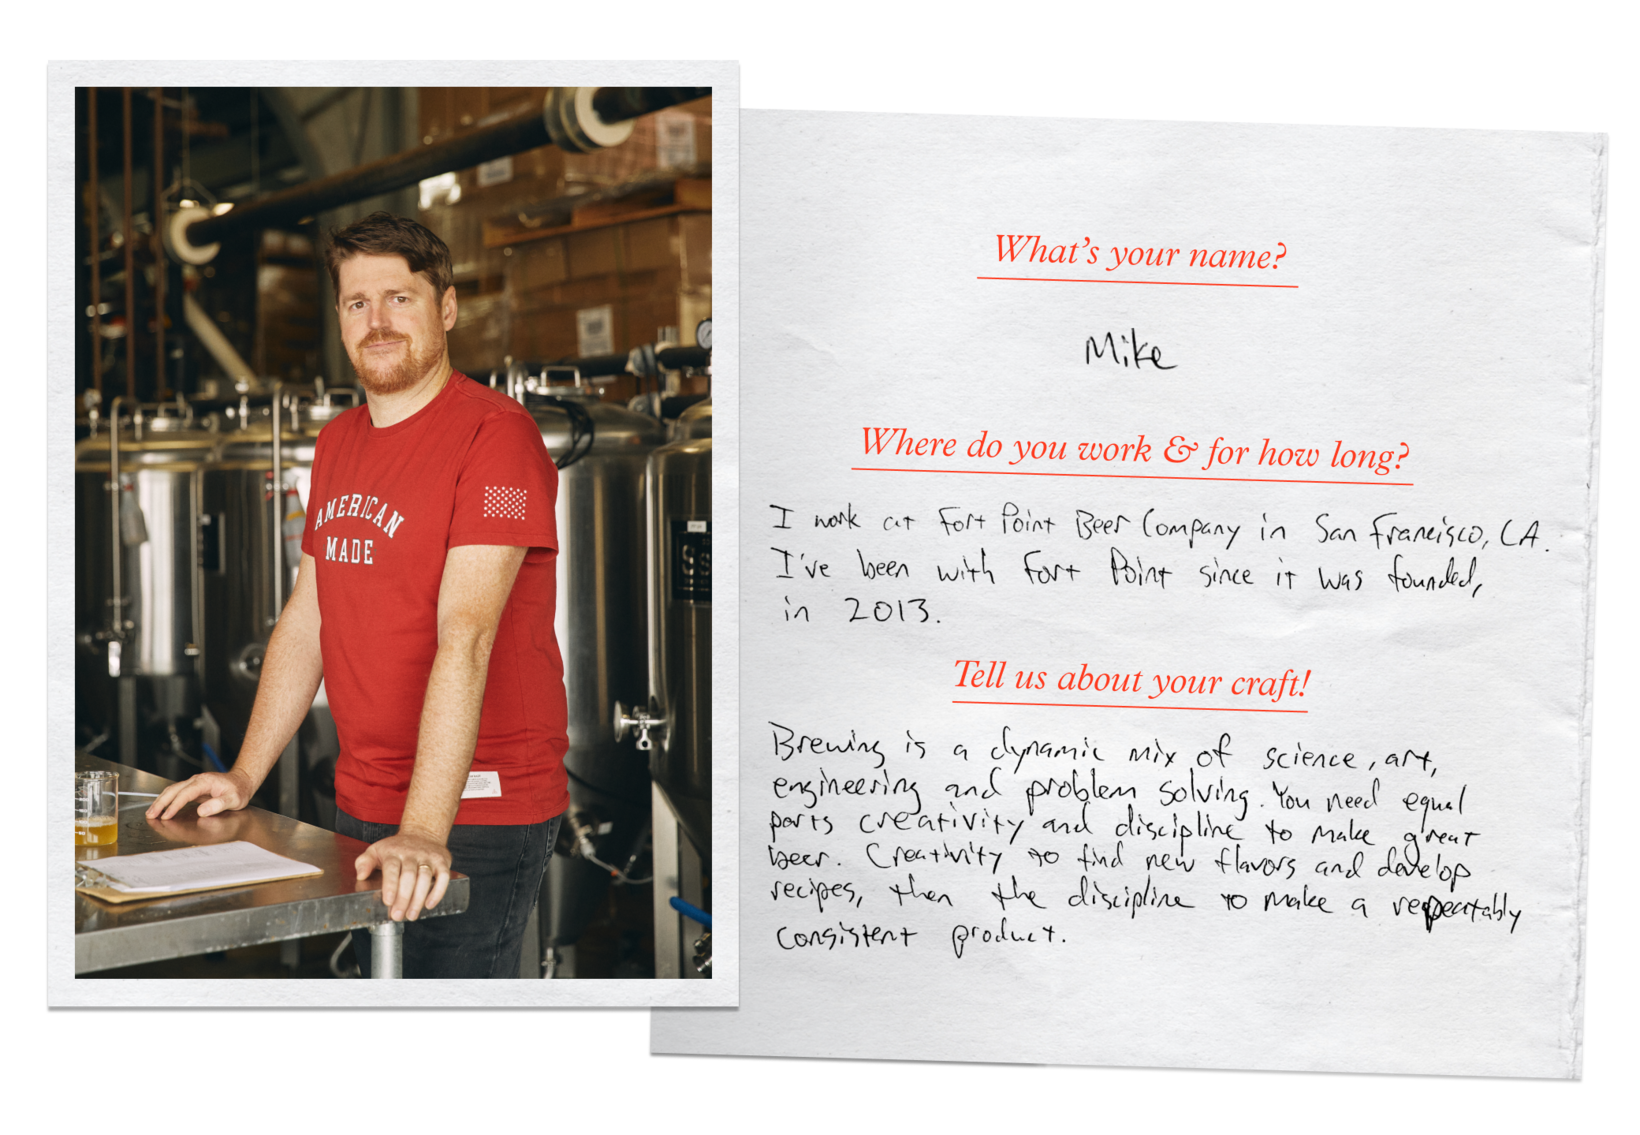 AMERICAN
MADE
What's your name?
Mike
Where do you work & for how long?
I work at Fort Point Beer Company in San Francisco, CA.
I've been with Fort Point since it was founded,
in 2013.
Tell us about your craft!
Brewing is a dynamic mix of science, art,
engineering and problem solving. You need equal
parts creativity and discipline to make great
beer. Creativity to find new flavors and develop
recipes, then the discipline to make a repeatably
consistent product.